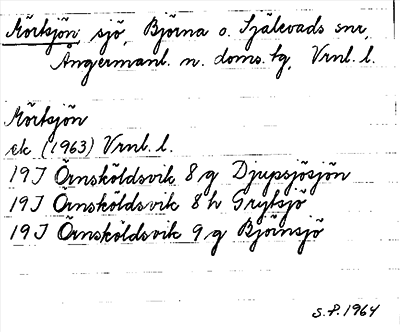 Mörtsjön sjö, Björna o. Själevads snr,
Ångermanl. n. doms. tg, Vrnl. l.
Mörtsjön
ek (1963) Vrnl. l.
19 J Örnsköldsvik 8 g Djupsjösjön
19 J Örnsköldsvik 8 h Grytsjö
19 J Örnsköldsvik 9 g Björnsjö
S.P. 1964